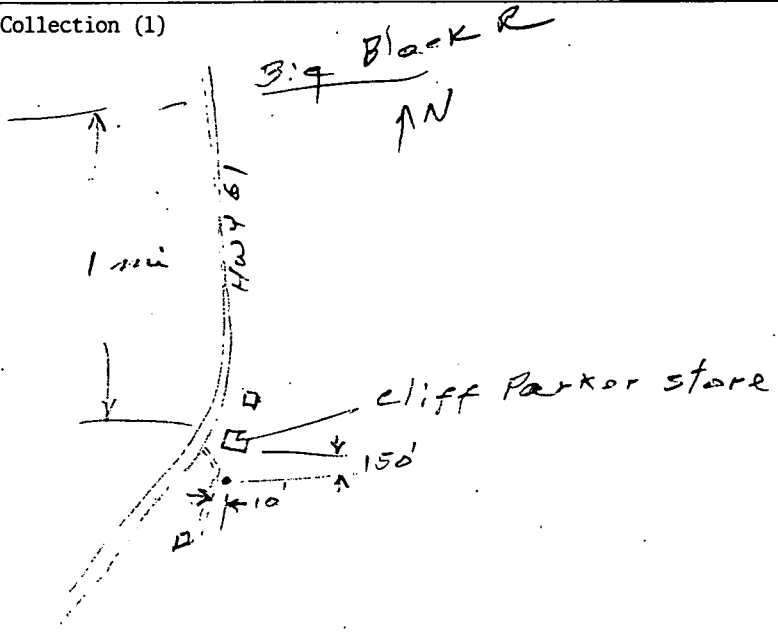 Collection (1)
Big Black R
↑N
HWY 61
1 mi
Cliff Parker store
150'
10'